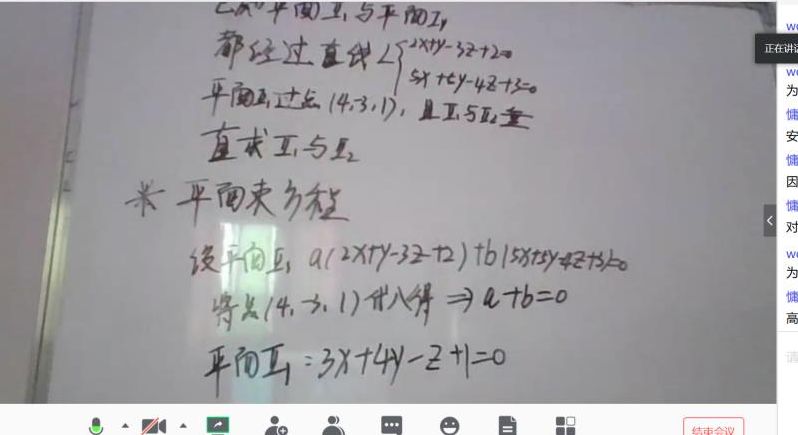 已知平面π₁与平面π₂
都经过直线L{2x+y-3z+2=0
5x+5y-4z+3=0
平面π₁过点(4,-3,1),且π₁与π₂垂
直求π₁与π₂
* 平面束方程
设平面π₁ a(2x+y-3z+2)+b(5x+5y-4z+3)=0
将点(4,-3,1)代入得⇒a+b=0
平面π₁:3x+4y-z+1=0
正在讲话
为
慵
安
慵
因
慵
对
为
慵
高
结束会议